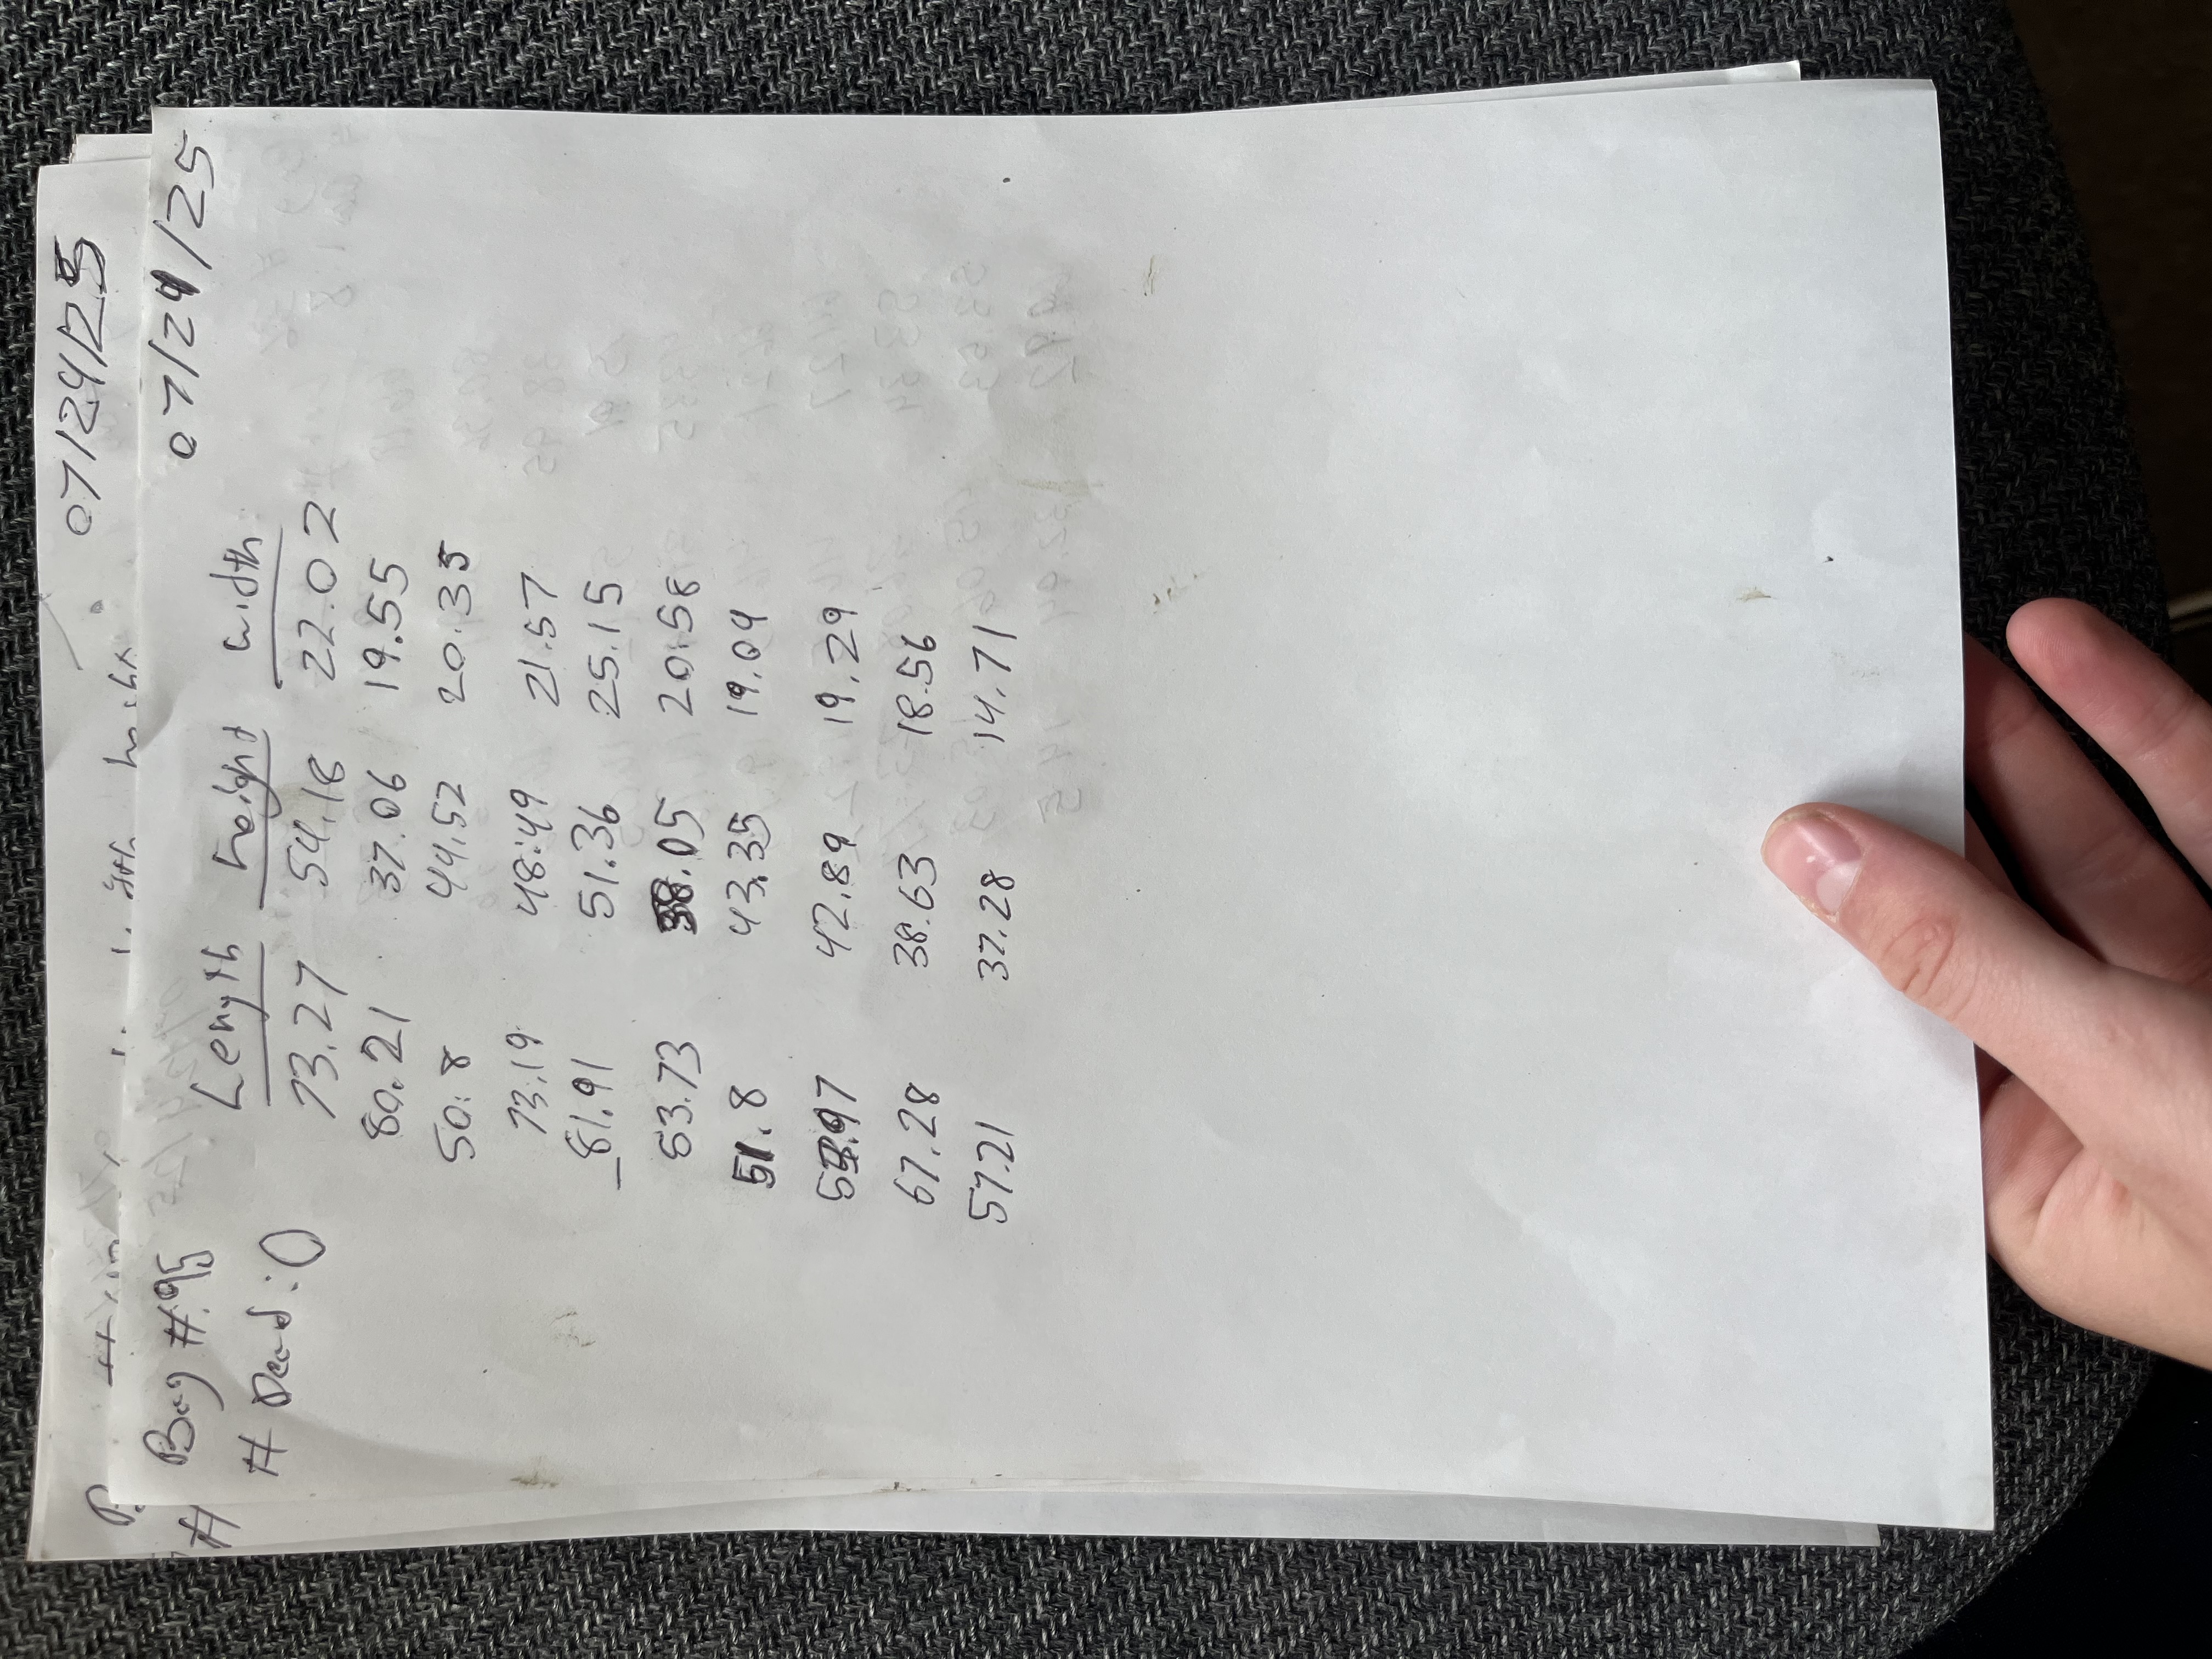 07/24/25
Bag #95
07/24/25
# Dead: 0
Length height width
73.27 54.18 22.02
80.21 37.06 19.55
50.8 44.52 20.35
73.19 48.49 21.57
81.91 51.36 25.15
63.73 38.05 20.58
51.8 43.35 19.09
42.89 19.29
67.28 38.63 18.56
57.21 37.28 14.71